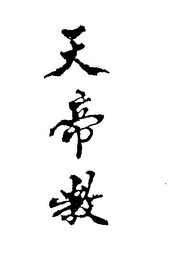 天帝教